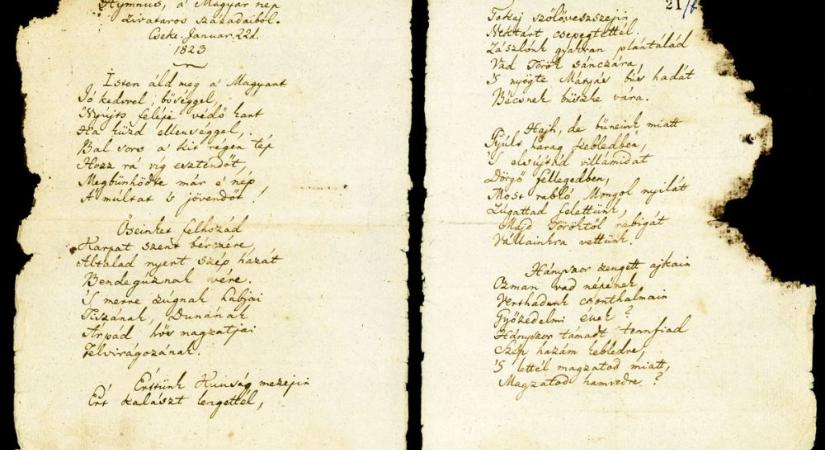 Hymnus, a' Magyar nép
Zivataros századaiból.
Cseke. Januar. 22d.
1823
Isten áld meg a Magyart
Jó kedvvel, bőséggel,
Nyújts feléje védő kart
Ha küzd ellenséggel,
Bal sors a' kit régen tép
Hozz rá víg esztendőt,
Megbűnhődte már e' nép
A' múltat 's jövendőt!
Őseinket felhozád
Kárpát szent bérczére,
Általad nyert szép hazát
Bendegúznak vére.
'S merre zúgnak habjai
Tiszának, Dunának
Árpád hős magzatjai
Felvirágozának.
Értünk Kunság mezején
Ért kalászt lengettél,
Tokaj szőlővesszein
Nektárt csepegtettél.
Zászlónk gyakran plántálád
Vad Török sánczára,
'S nyögte Mátyás bús hadát
Bécsnek büszke vára.
Hajh, de bűneink miatt
Gyúlt harag kebledben,
'S elsújtád villámidat
Dörgő fellegedben,
Most rabló Mongol nyilát
Zúgattad felettünk,
Majd Töröktől rabigát
Vállainkra vettünk.
Hányszor zengett ajkain
Ozman vad népének
Vert hadunk csonthalmain
Győzedelmi ének?
Hányszor támadt tennfiad
Szép hazám kebledre,
'S lettél magzatod miatt,
Magzatod hamvedre?